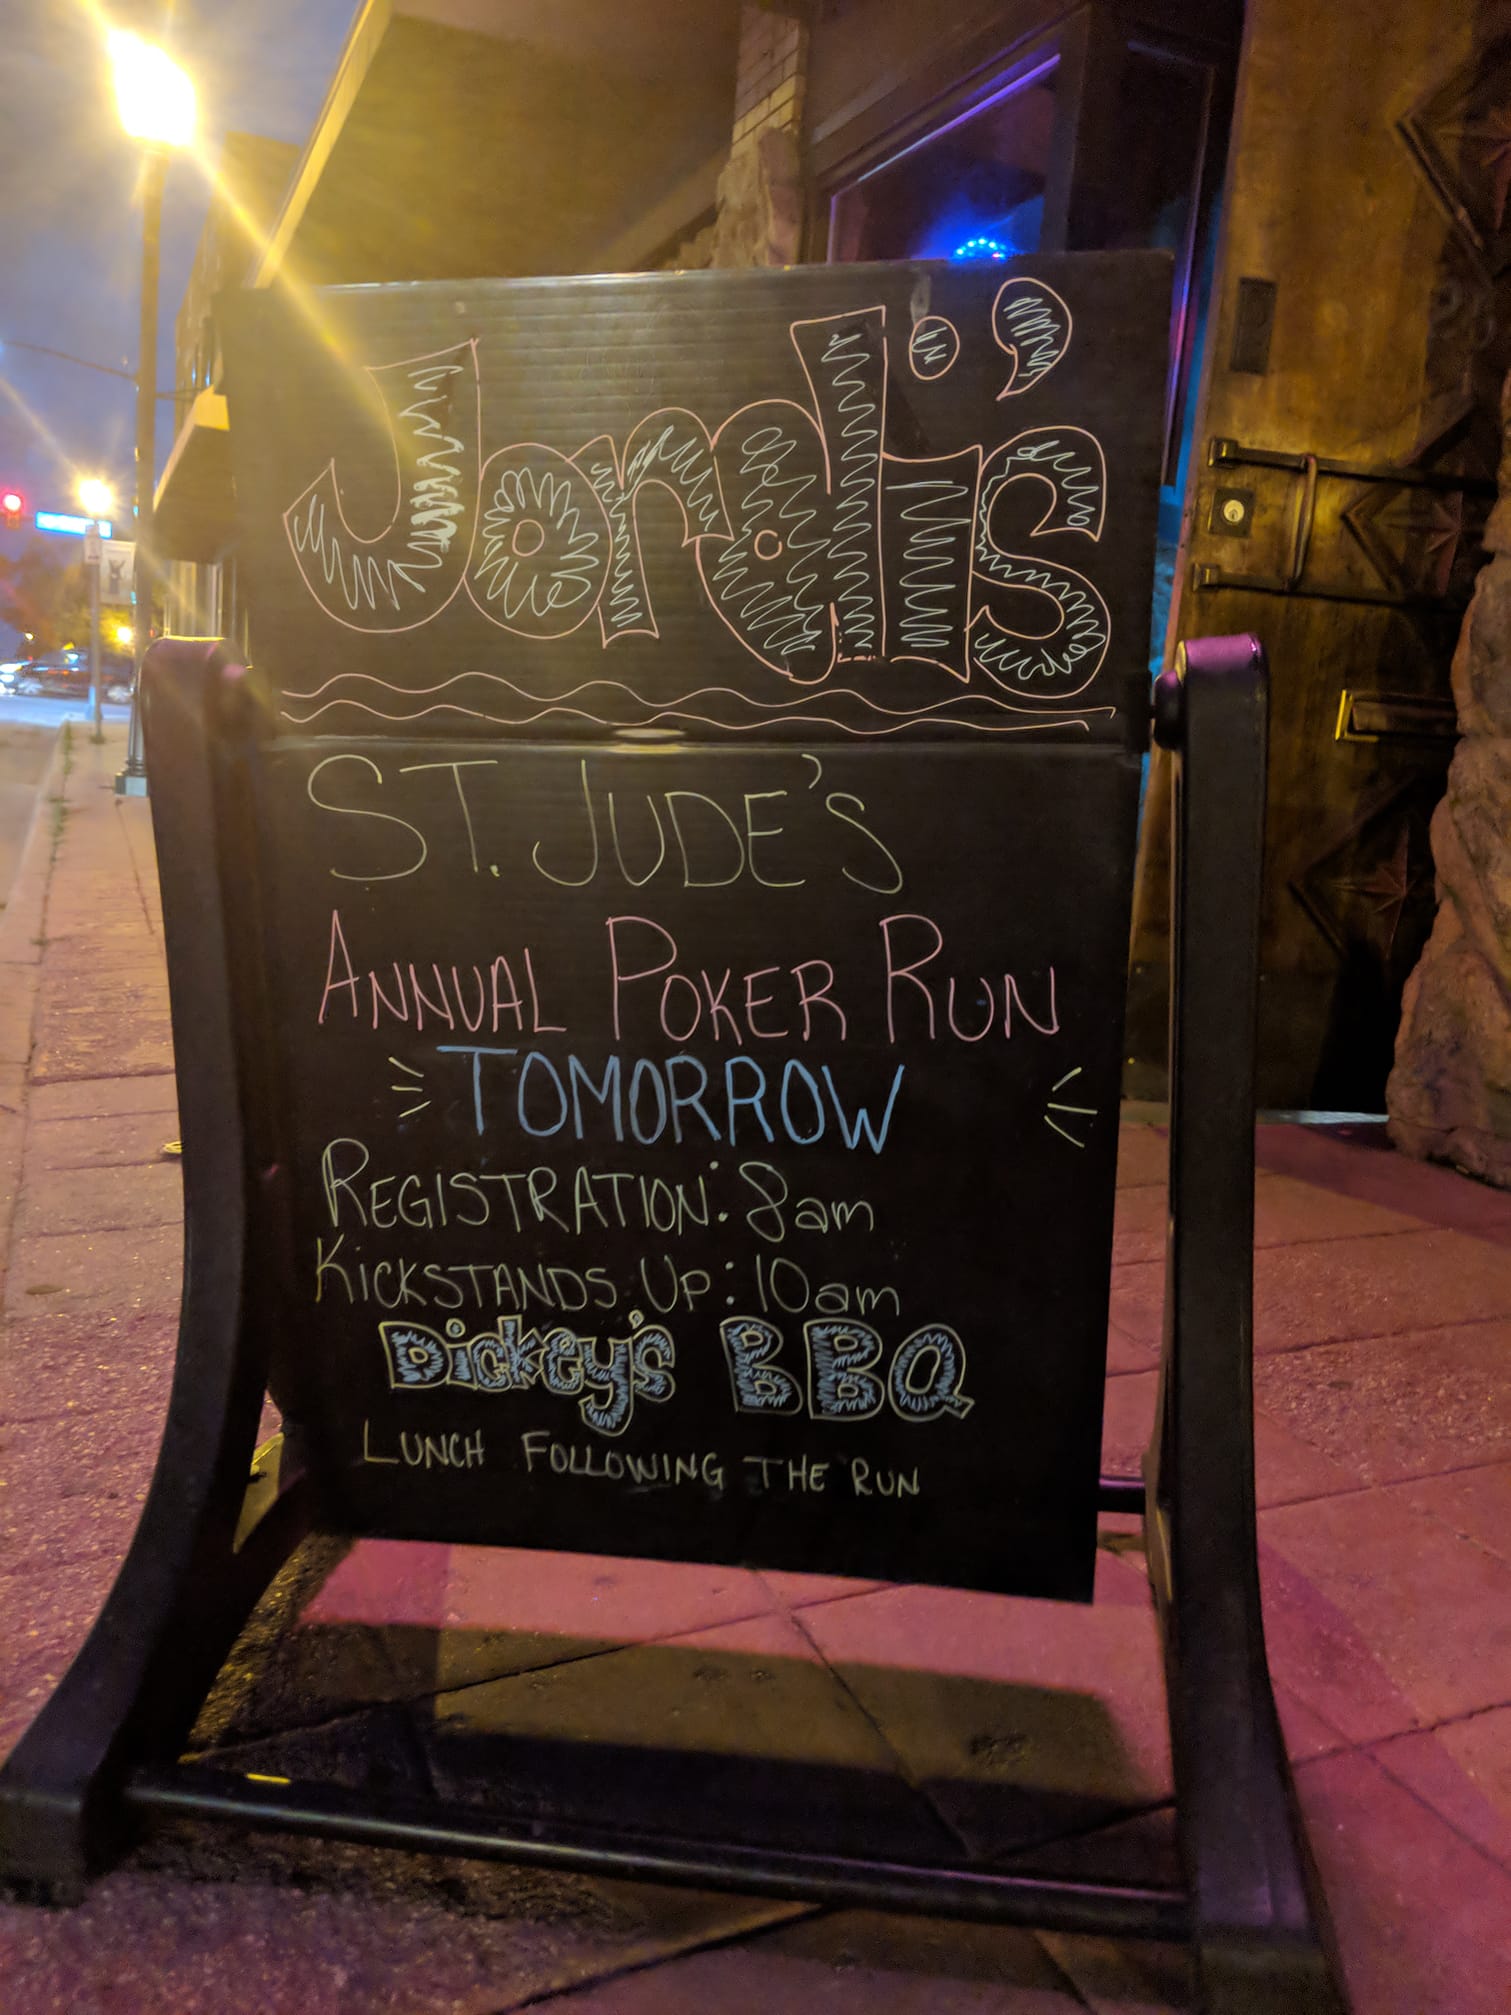 Jordi's
ST. JUDE'S
ANNUAL POKER RUN
TOMORROW
REGISTRATION: 8am
KICKSTANDS UP: 10am
Dickey's BBQ
LUNCH FOLLOWING THE RUN